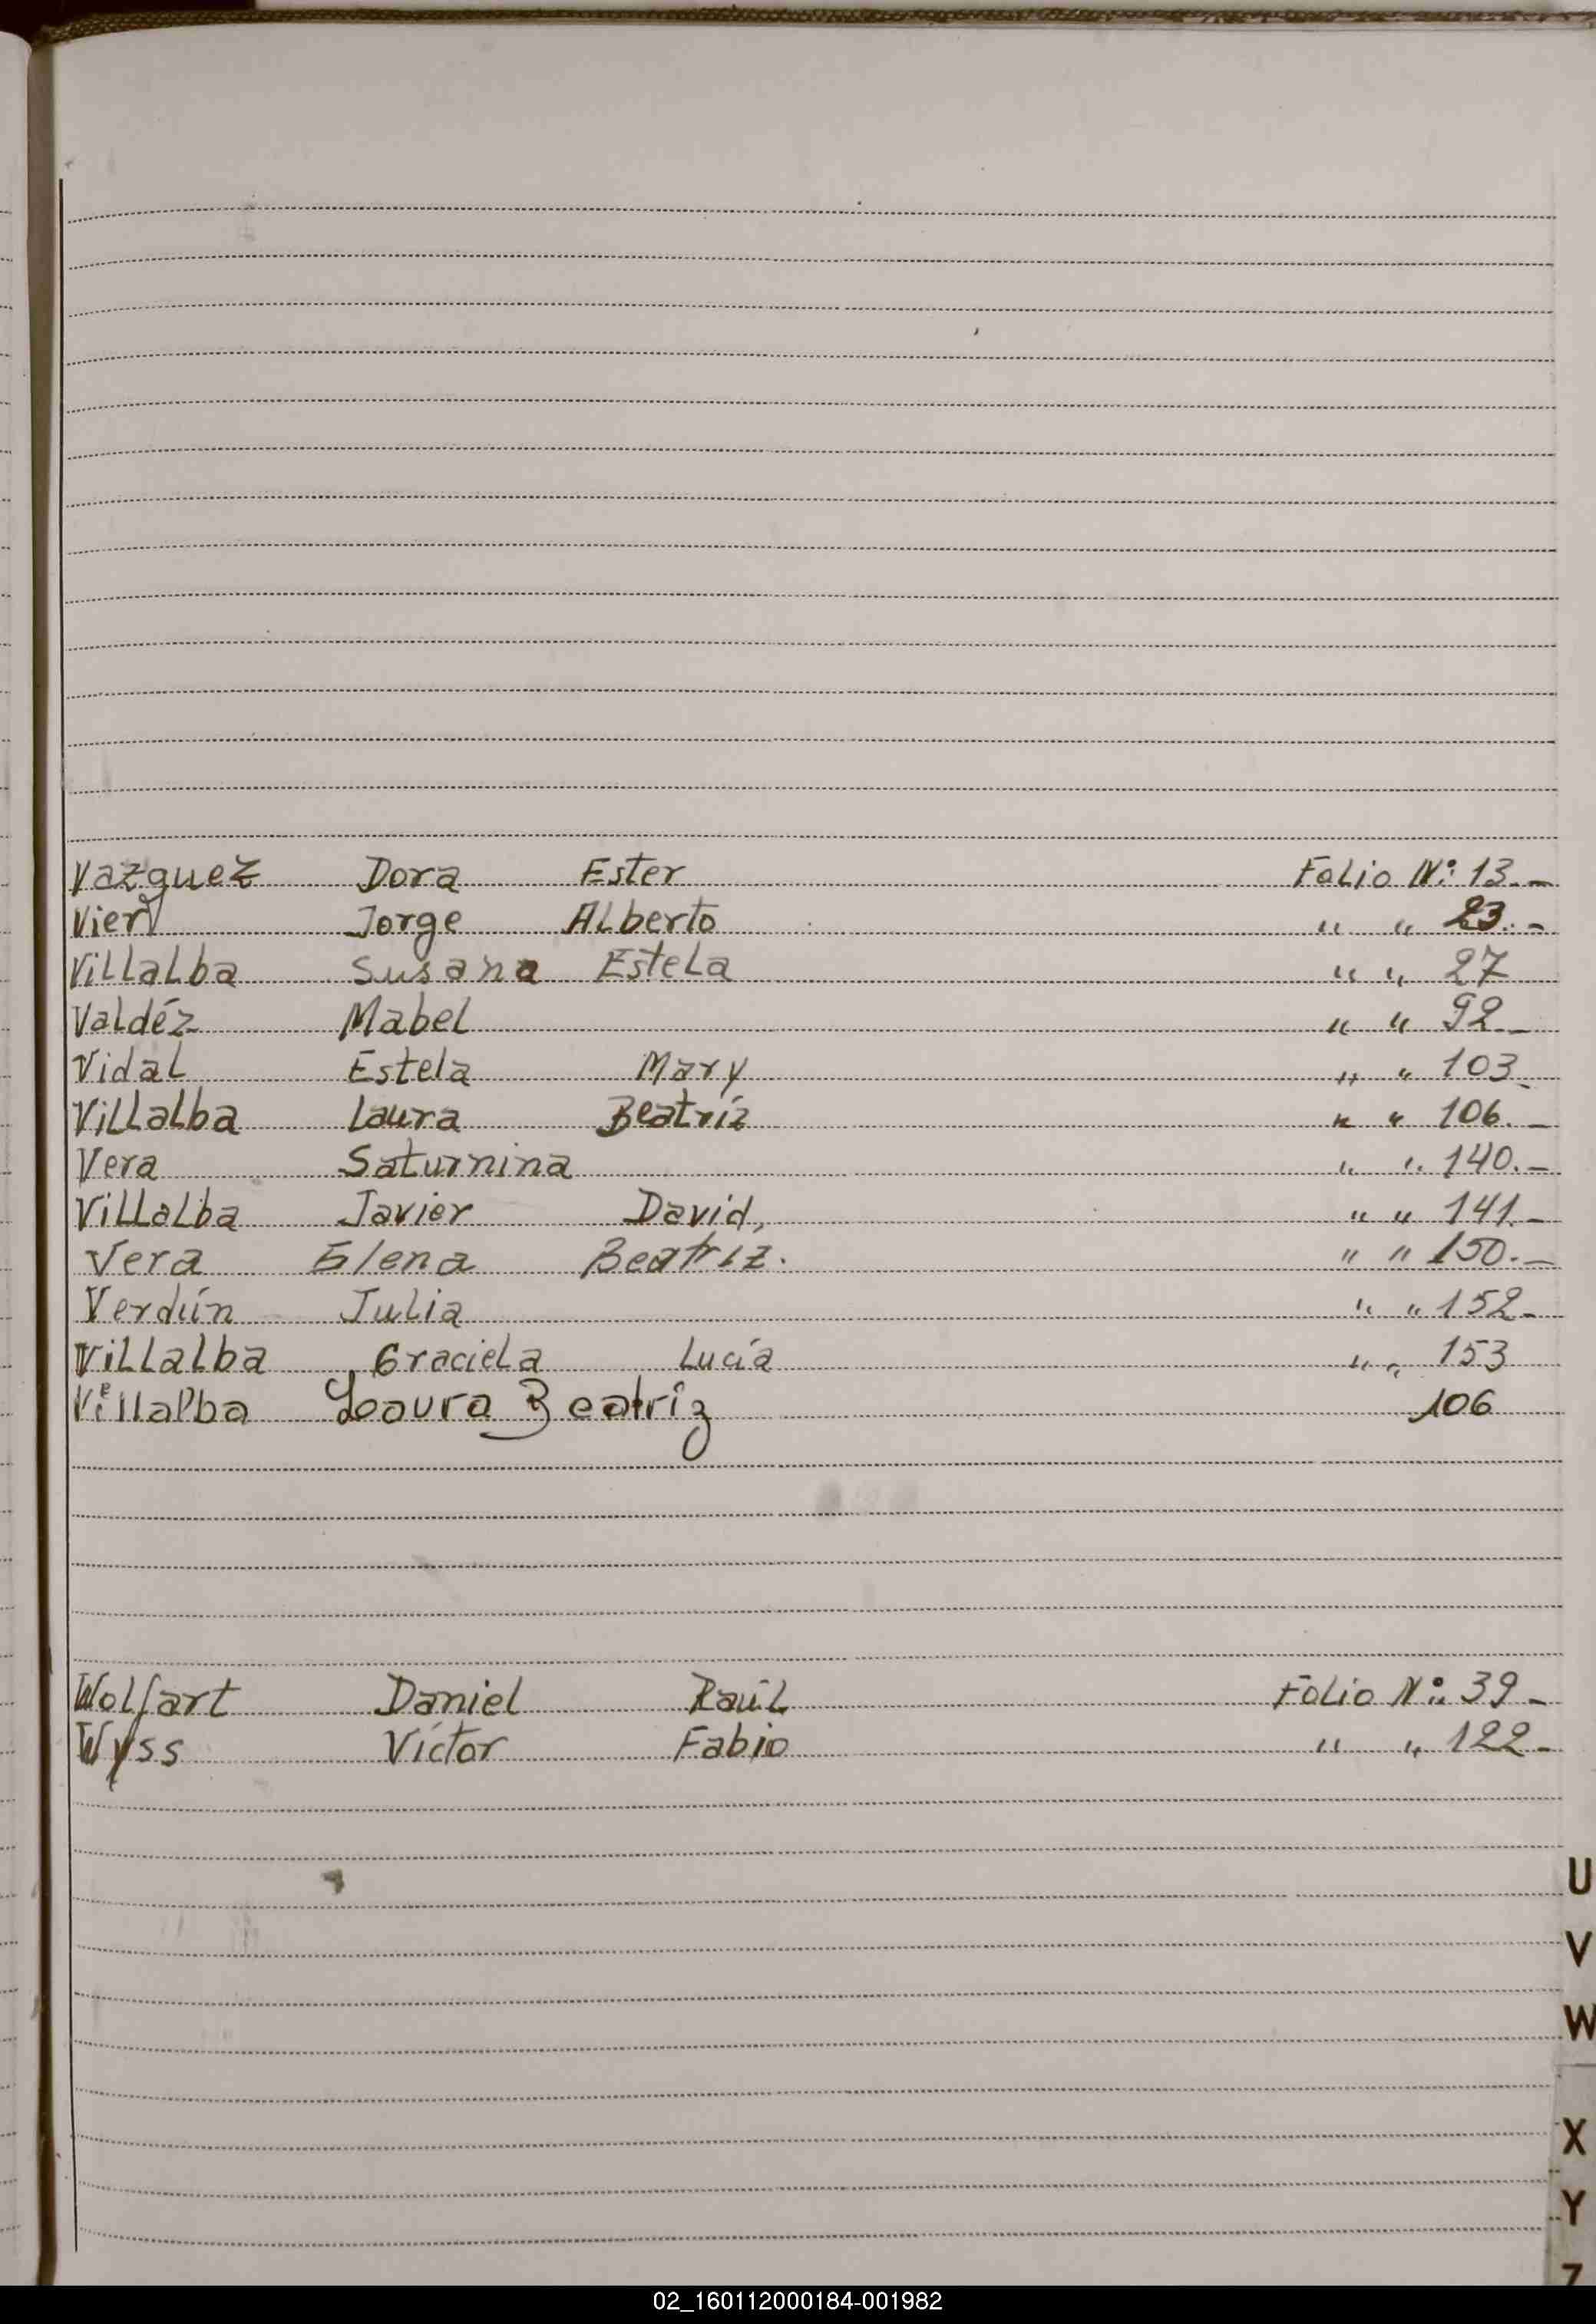 Vazquez Dora Ester Folio Nº: 13.-
Viery Jorge Alberto " " 23.-
Villalba Susana Estela " " 27
Valdéz Mabel " " 92-
Vidal Estela Mary " " 103-
Villalba Laura Beatríz " " 106.-
Vera Saturnina " " 140.-
Villalba Javier David, " " 141.-
Vera Elena Beatriz. " " 150.-
Verdún Julia " " 152-
Villalba Graciela Lucía " " 153
Villalba Laura Beatriz 106
Wolfart Daniel Raúl Folio Nº: 39-
Wyss Víctor Fabio " " 122-
U
V
W
X
Y
Z
02_160112000184-001982